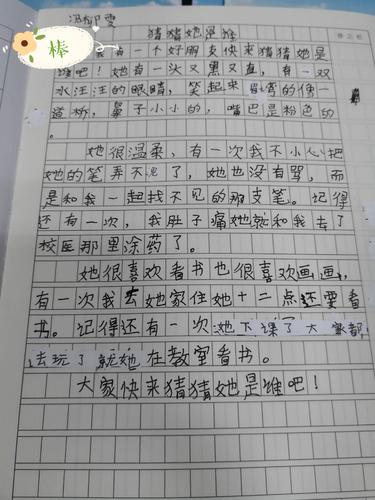 冯郁雯
猜猜她是谁
棒
有一个好朋友快来猜猜她是
谁吧！她有一头又黑又直，有一双
水汪汪的眼睛，笑起来眉弯的像一
道桥，鼻子小小的，嘴巴是粉色的
。
她很温柔，有一次我不小心把
她的笔弄不见了，她也没有骂，而
是和我一起找不见的那支笔。记得
还有一次，我肚子痛她就和我去了
校医那里涂药了。
她很喜欢看书也很喜欢画画，
有一次我去她家住她十二点还要看
书。记得还有一次她下课了大家都
去玩了就她在教室看书。
大家快来猜猜她是谁吧！